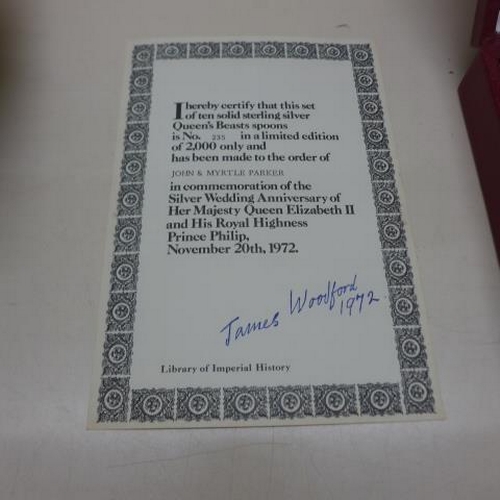 I hereby certify that this set
of ten solid sterling silver
Queen's Beasts spoons
is No. 235 in a limited edition
of 2,000 only and
has been made to the order of
JOHN & MYRTLE PARKER
in commemoration of the
Silver Wedding Anniversary of
Her Majesty Queen Elizabeth II
and His Royal Highness
Prince Philip,
November 20th, 1972.
James Woodford
1972
Library of Imperial History